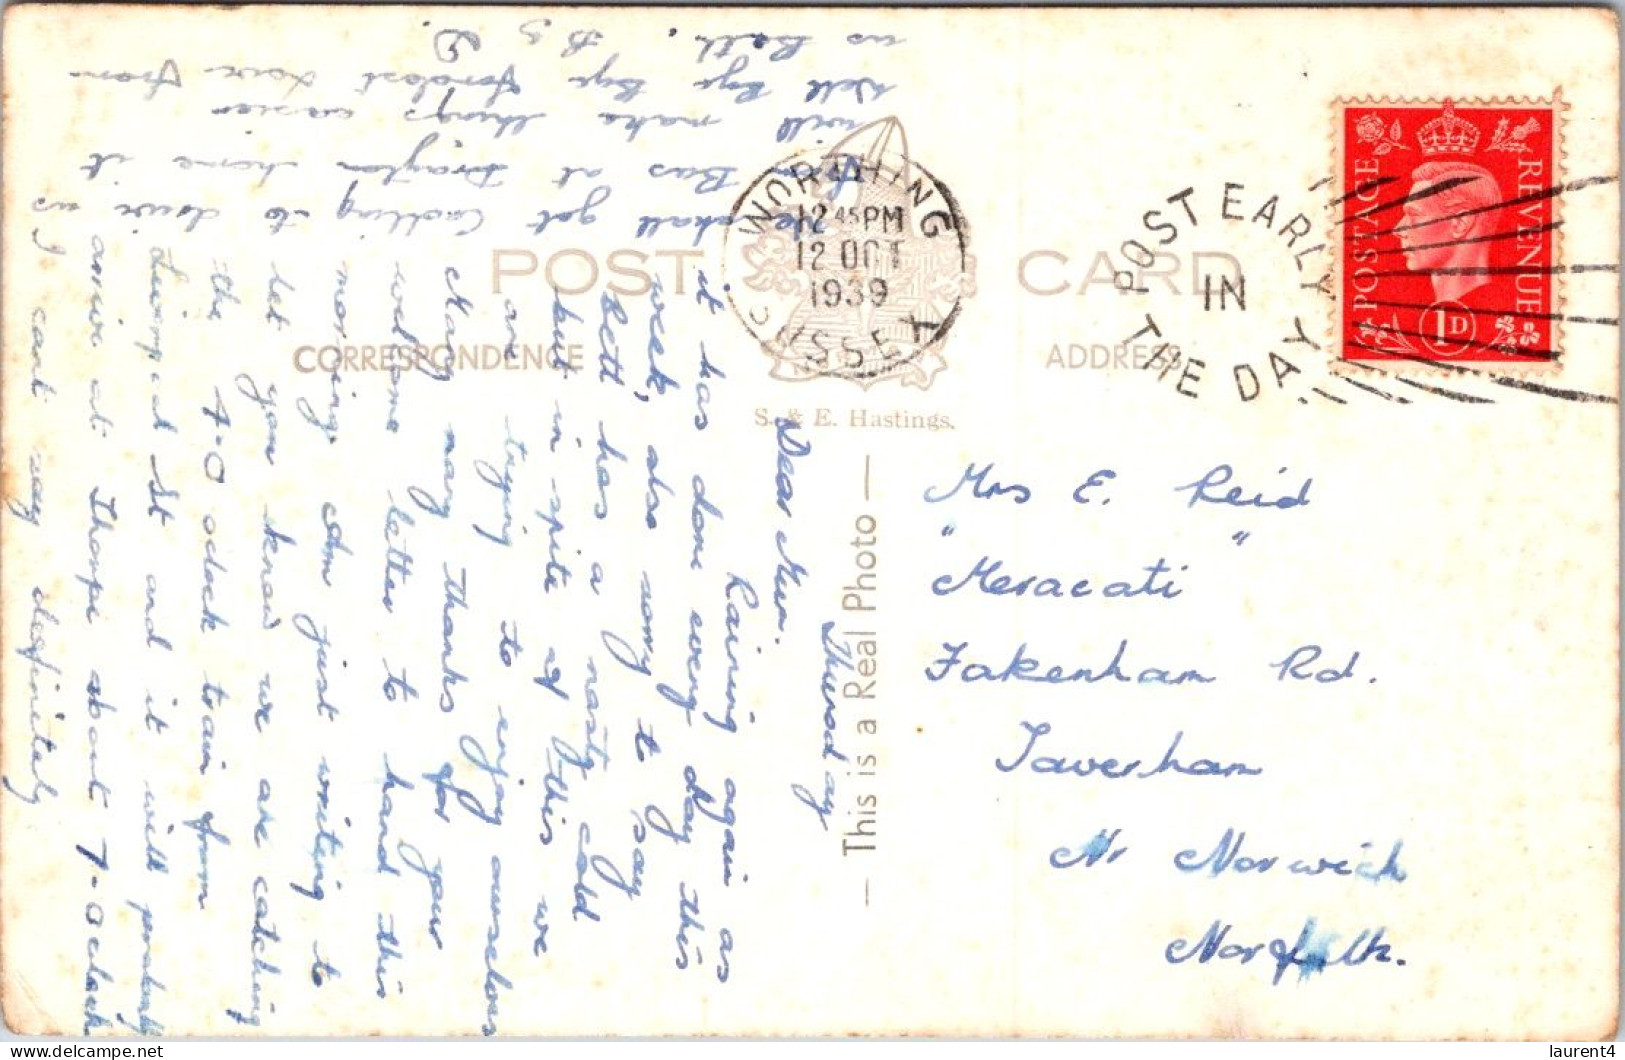 POST CARD
CORRESPONDENCE
ADDRESS
S. & E. Hastings.
This is a Real Photo
WORTHING
12 45 PM
12 OCT
1939
SUSSEX
POST EARLY
IN
THE DAY
POSTAGE
REVENUE
1D
Mrs E. Reid
"Meracati"
Fakenham Rd.
Taverham
Nr Norwich
Norfolk.
Thursday
Dear Mum.
Raining again as
it has done every day this
week, also sorry to say
Bett has a nasty cold
but in spite of this we
are trying to enjoy ourselves
Many many thanks for your
welcome letter to hand this
morning. Am just writing to
let you know we are catching
the 4-0 oclock train from
Liverpool St and it will probably
arrive at Thorpe about 7-0 clock
I cant say definitely
shall get Codling to drive us
Bus at Drayton home it
will make things easier
Well Bye Bye fondest Love from
us Both.
laurent4